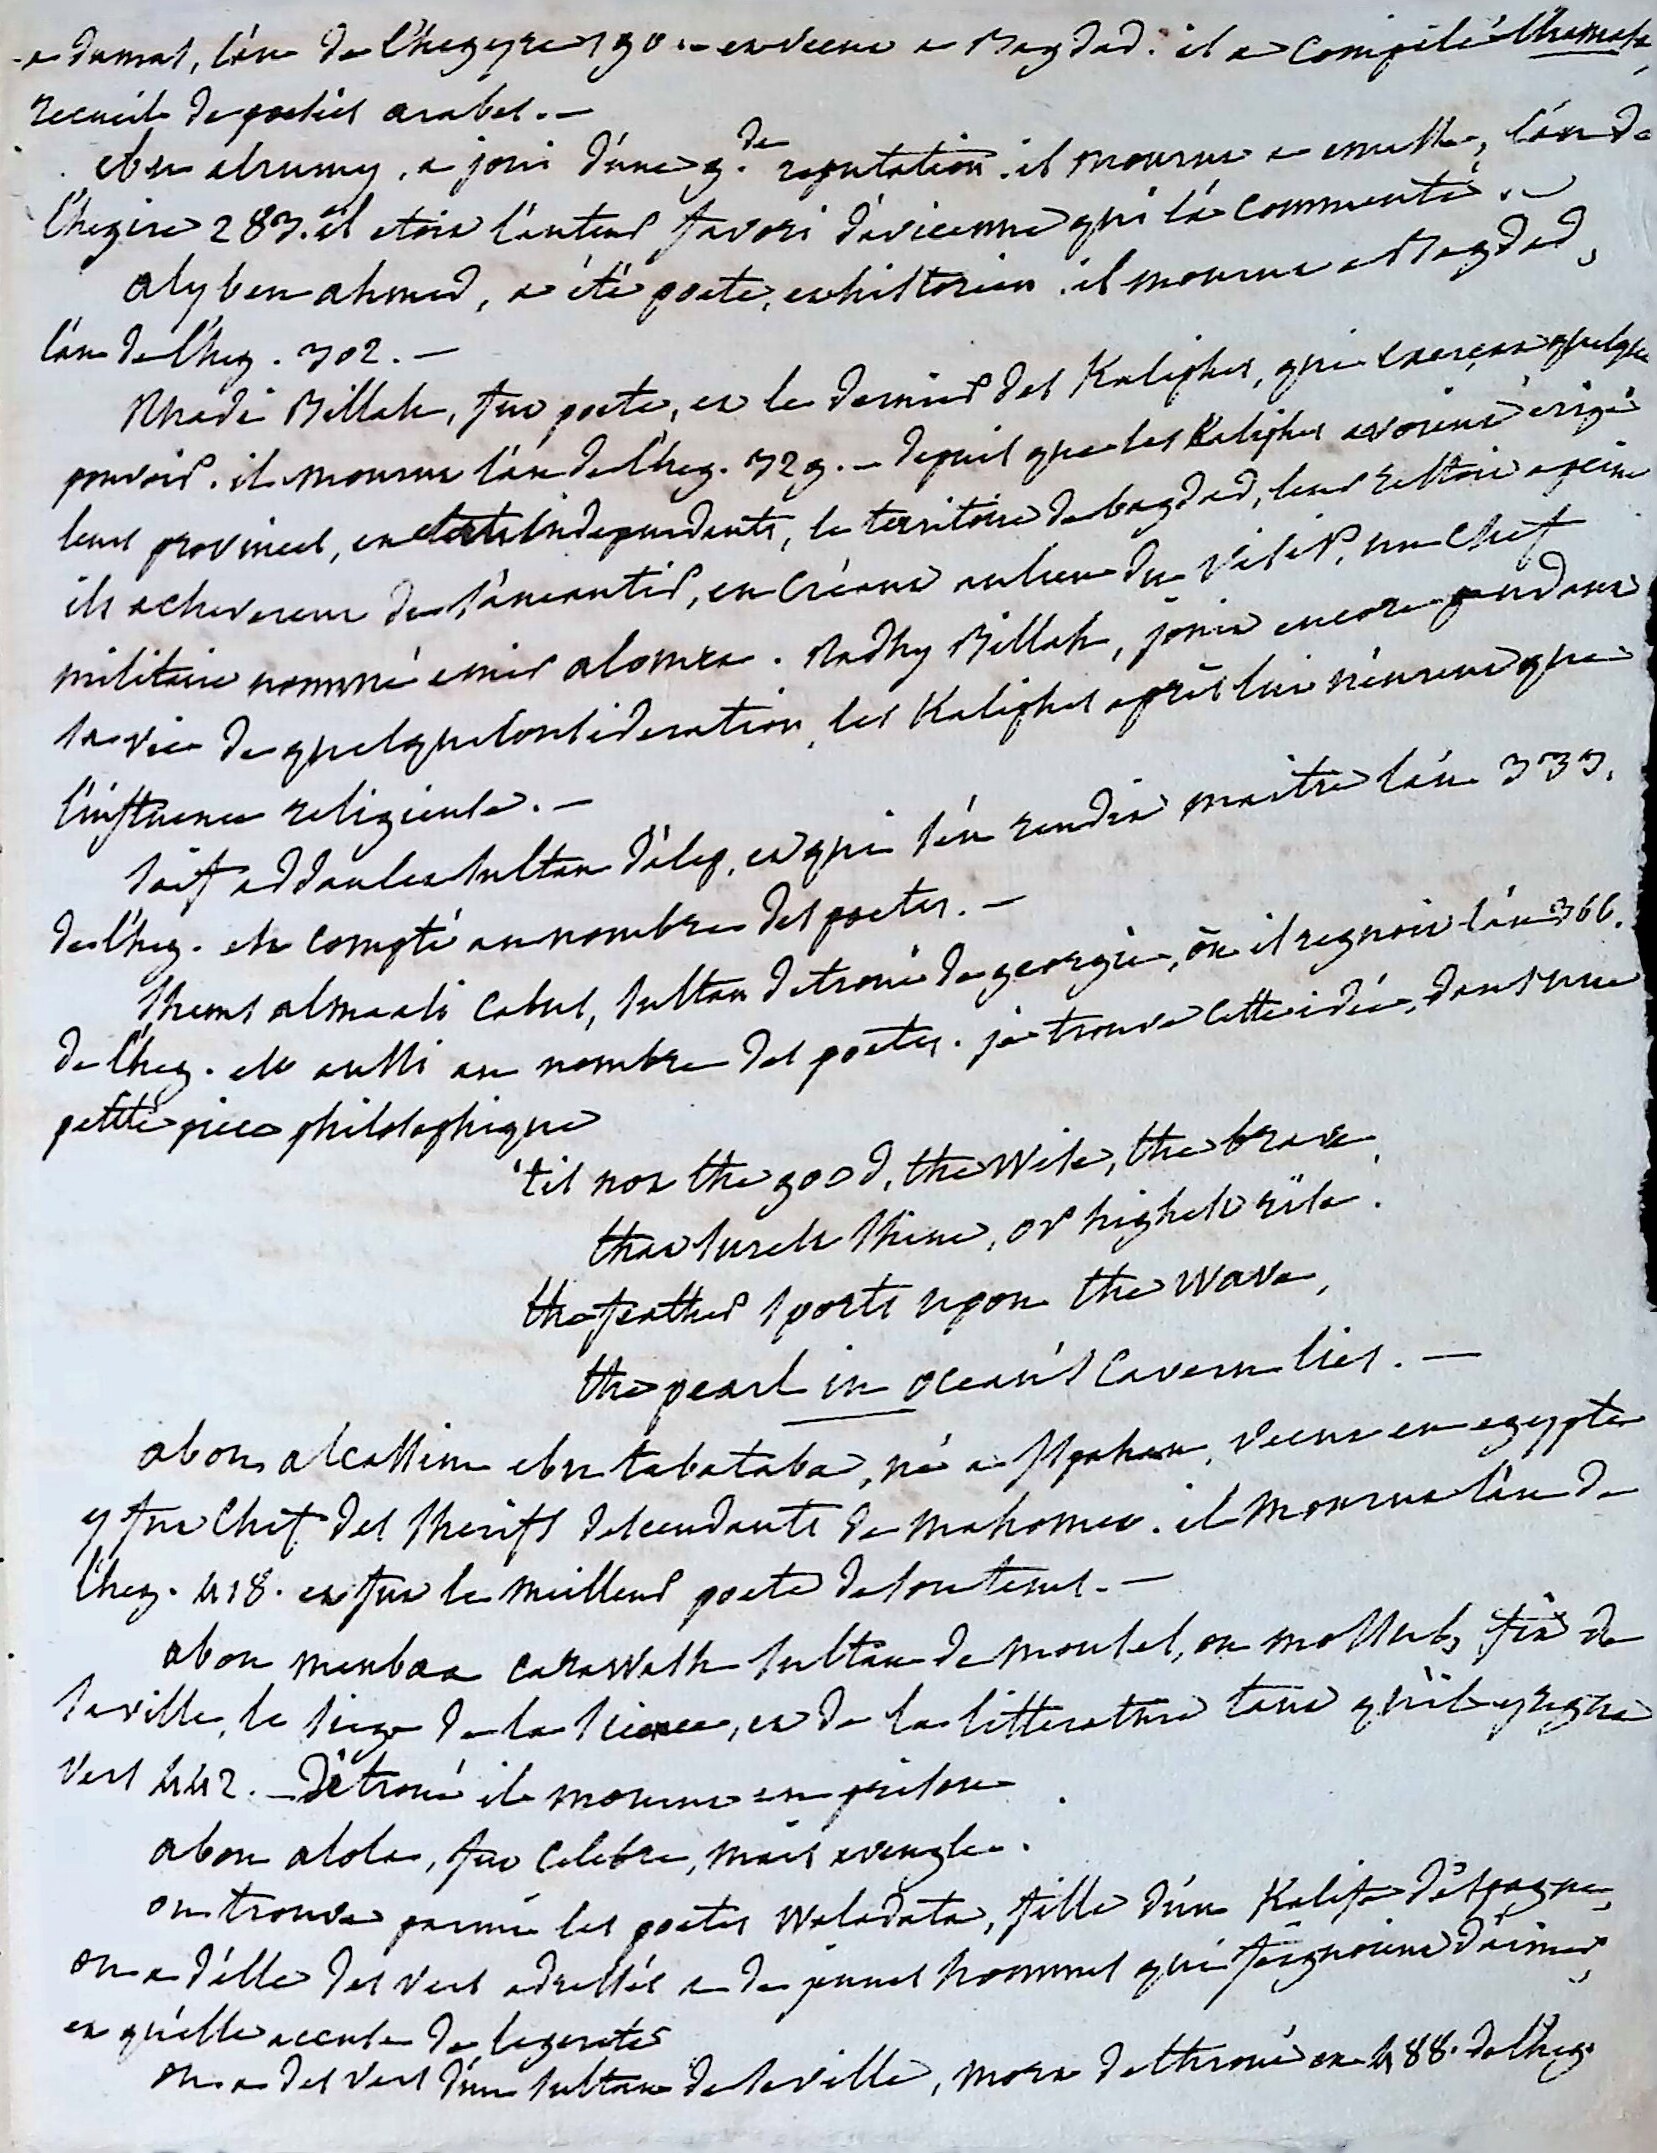 a damas, l'an de l'hegyre 190. et vecut a Bagdad. il a compilé l'hamasa,
recueil de poesies arabes. —
ebn alrumy, a joui d'une g.de reputation. il mourut a emesse, l'an de
l'hegire 283. il etoit l'auteur favori d'avicenne qui l'a commenté. —
aly ben ahmed, a été poete, et historien. il mourut a Bagdad,
l'an de l'heg. 302. —
Rhadi Billah, fut poete, et le dernier des Kalifes, qui exerça quelque
pouvoir. il mourut l'an de l'heg. 329. — depuis que les Kalifes avoient érigé
leurs provinces, en etats independants, le territoire de bagdad, leur restoit a peine
ils acheverent de s'aneantir, en créant au lieu du visir, un chef
militaire nommé emir alomra. Radhy Billah, jouit encore pendant
sa vie de quelque consideration, les Kalifes après lui n'eurent que
l'influence religieuse. —
saif addaula sultan d'alep, et qui s'en rendit maitre l'an 333.
de l'heg. est compté au nombre des poetes. —
shems almaali cabus, sultan detroné de georgie, où il regnoit l'an 366.
de l'heg. est aussi au nombre des poetes. je trouve cette idée, dans une
petite piece philosophique
'tis not the good, the wise, the brave
that surest shine, or highest rise.
the feather sports upon the wave,
the pearl in ocean's cavern lies. —
abou alcassim ebn tabataba, né a ispahan, vecut en egypte
y fut chef des sherifs descendants de mahomet. il mourut l'an de
l'heg. 418. et fut le meilleur poete de son tems. —
abou menbaa carawash sultan de mousel, ou mossul, fit de
sa ville, le siege de la science, et de la litterature tant qu'il y regna
vers 442. — Détroné il mourut en prison
abou alola, fut celebre, mais aveugle.
on trouve parmi les poetes waladata, fille d'un Kalife d'espagne,
on a d'elle des vers adressés a de jeunes hommes qui feignoient d'aimer,
et qu'elle accuse de legereté
on a des vers d'un sultan de seville, mort dethroné en 488. de l'heg.